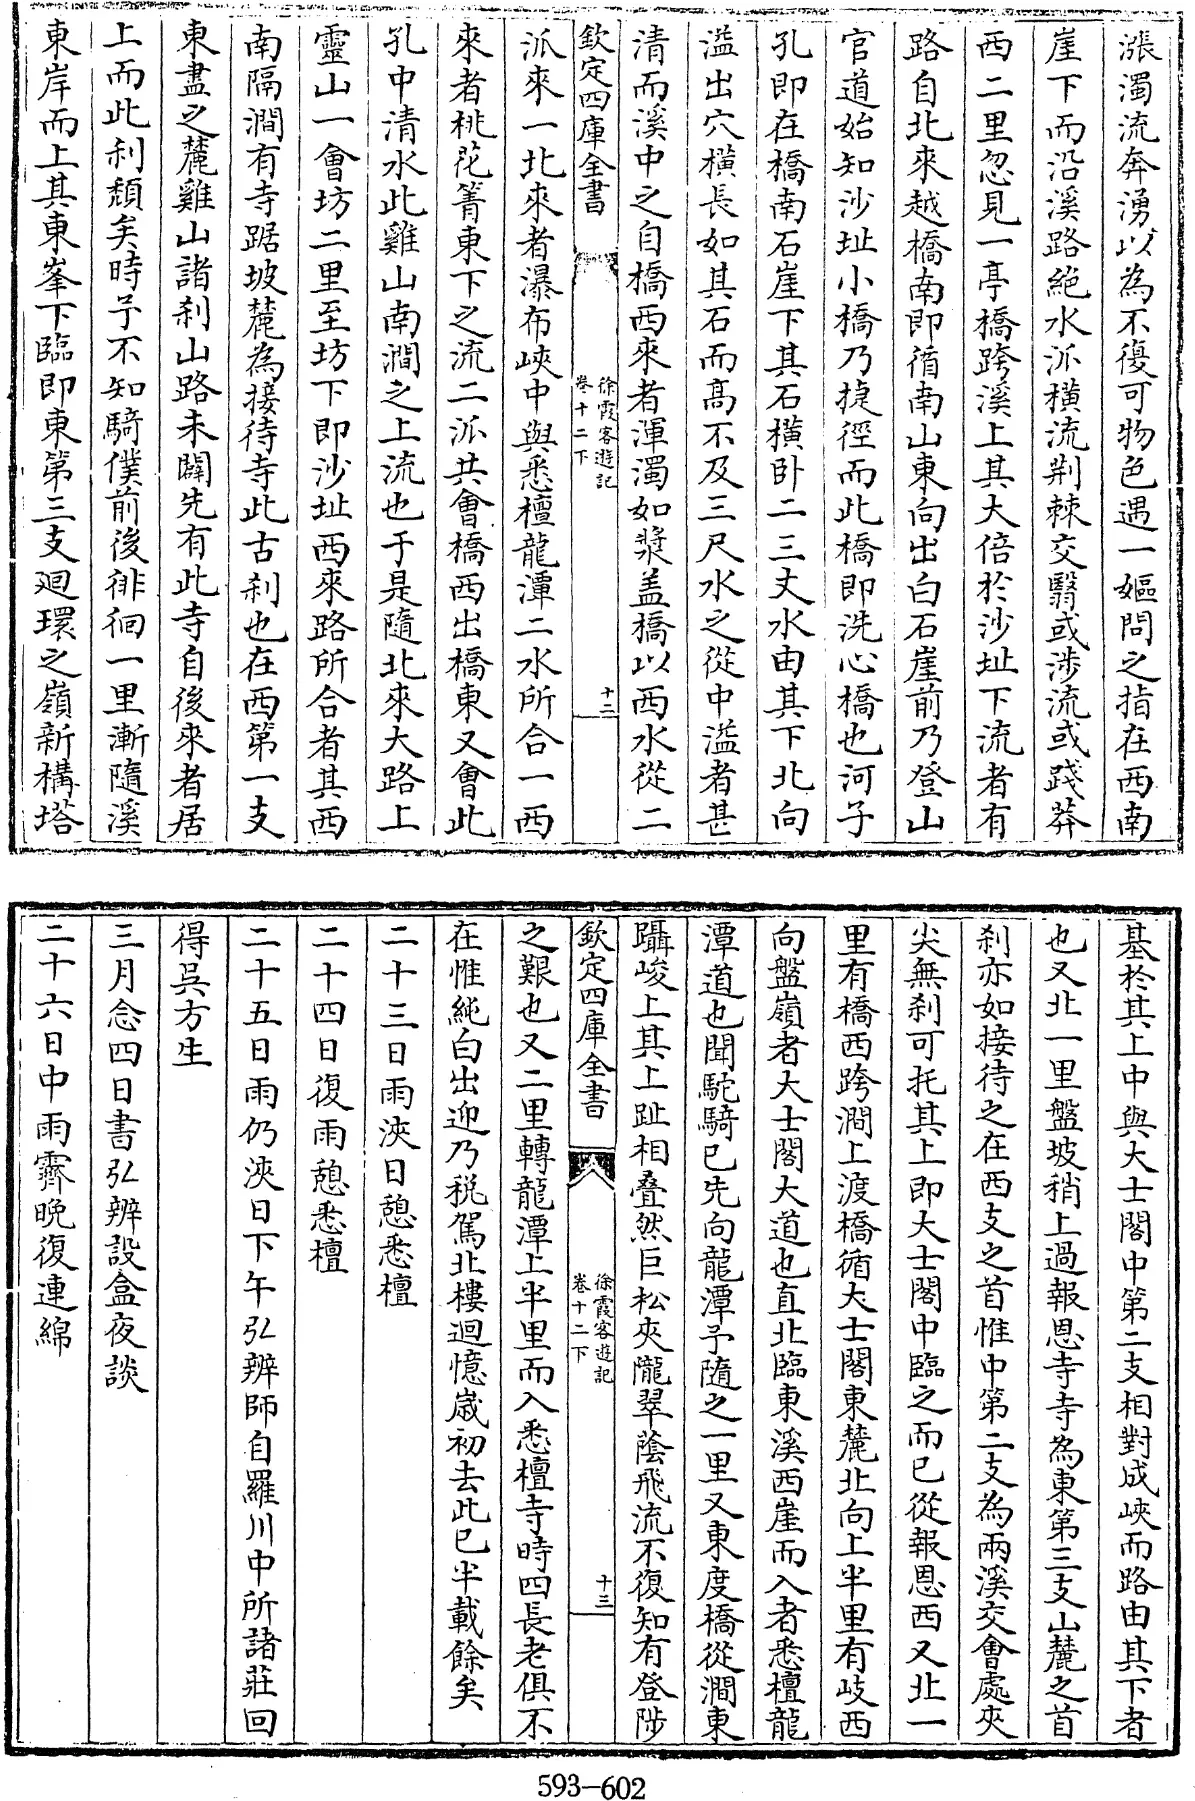 漲濁流奔湧以為不復可物色遇一嫗問之指在西南
崖下而沿溪路絕水派橫流荆棘交翳或涉流或踐莽
西二里忽見一亭橋跨溪上其大倍於沙址下流者有
路自北來越橋南即循南山東向出白石崖前乃登山
官道始知沙址小橋乃捷徑而此橋即洗心橋也河子
孔即在橋南石崖下其石橫卧二三丈水由其下北向
溢出穴橫長如其石而髙不及三尺水之從中溢者甚
清而溪中之自橋西來者渾濁如漿盖橋以西水從二
欽定四庫全書
徐霞客遊記
卷十二下
十二
派來一北來者瀑布峽中與悉檀龍潭二水所合一西
來者桃花箐東下之流二派共會橋西出橋東又會此
孔中清水此雞山南澗之上流也于是隨北來大路上
靈山一會坊二里至坊下即沙址西來路所合者其西
南隔澗有寺踞坡麓為接待寺此古刹也在西第一支
東盡之麓雞山諸刹山路未闢先有此寺自後來者居
上而此刹頽矣時予不知騎僕前後徘徊一里漸隨溪
東岸而上其東峯下臨即東第三支廻環之嶺新構塔
基於其上中與大士閣中第二支相對成峽而路由其下者
也又北一里盤坡稍上過報恩寺寺為東第三支山麓之首
刹亦如接待之在西支之首惟中第二支為兩溪交會處夾
尖無刹可托其上即大士閣中臨之而已從報恩西又北一
里有橋西跨澗上渡橋循大士閣東麓北向上半里有岐西
向盤嶺者大士閣大道也直北臨東溪西崖而入者悉檀龍
潭道也聞駝騎已先向龍潭予隨之一里又東度橋從澗東
躡峻上其上趾相叠然巨松夾隴翠蔭飛流不復知有登陟
欽定四庫全書
徐霞客遊記
卷十二下
十三
之艱也又二里轉龍潭上半里而入悉檀寺時四長老俱不
在惟純白出迎乃税駕北樓迴憶嵗初去此已半載餘矣
二十三日雨浹日憩悉檀
二十四日復雨憩悉檀
二十五日雨仍浹日下午弘辨師自羅川中所諸莊回
得吳方生
三月念四日書弘辨設盒夜談
二十六日中雨霽晚復連綿
593-602